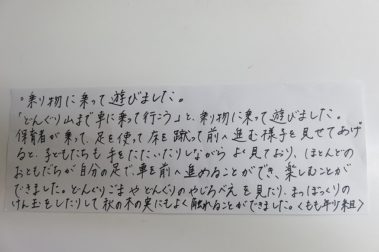 ○乗り物に乗って遊びました。
「どんぐり山まで車に乗って行こう」と、乗り物に乗って遊びました。
保育者が乗って、足を使って床を蹴って前へ進む様子を見せてあげ
ると、子どもたちも手をたたいたりしながらよく見ており、ほとんどの
おともだちが自分の足で、車を前へ進めることができ、楽しむことが
できました。どんぐりごまやどんぐりのやじろべえを見たり、まつぼっくりの
けん玉をしたりして秋の木の実にもよく触れることができました。〈もも 組〉